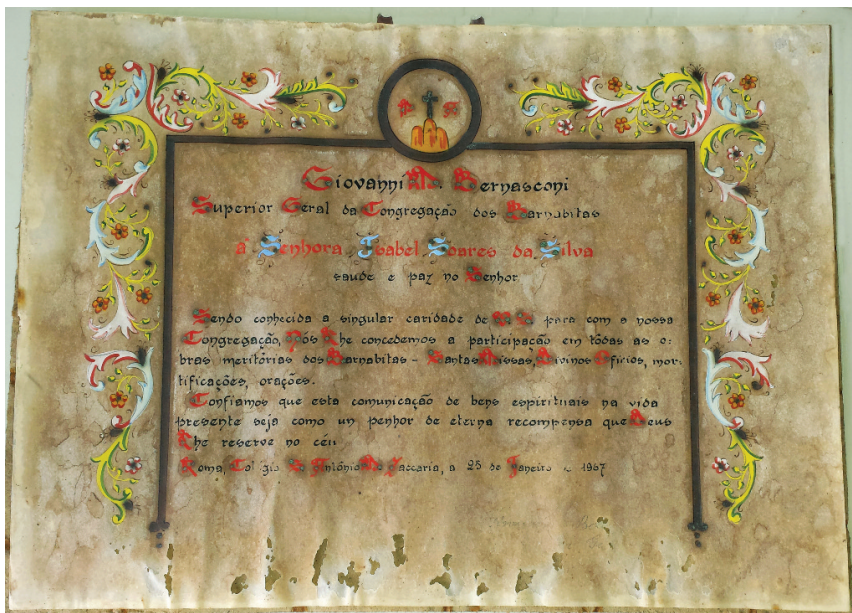 Giovanni M. Bernasconi
Superior Geral da Congregação dos Barnabitas
à Senhora Isabel Soares da Silva
saude e paz no Senhor
Sendo conhecida a singular caridade de para com a nossa
Congregação, Nós lhe concedemos a participação em tôdas as o-
bras meritórias dos Barnabitas - Santas Missas, Divinos Ofícios, mor-
tificações, orações.
Confiamos que esta comunicação de bens espirituais na vida
presente seja como un penhor de eterna recompensa que Deus
lhe reserve no céu
Roma, Colégio S. Antônio M. Zaccaria, a 25 de Janeiro e 1967